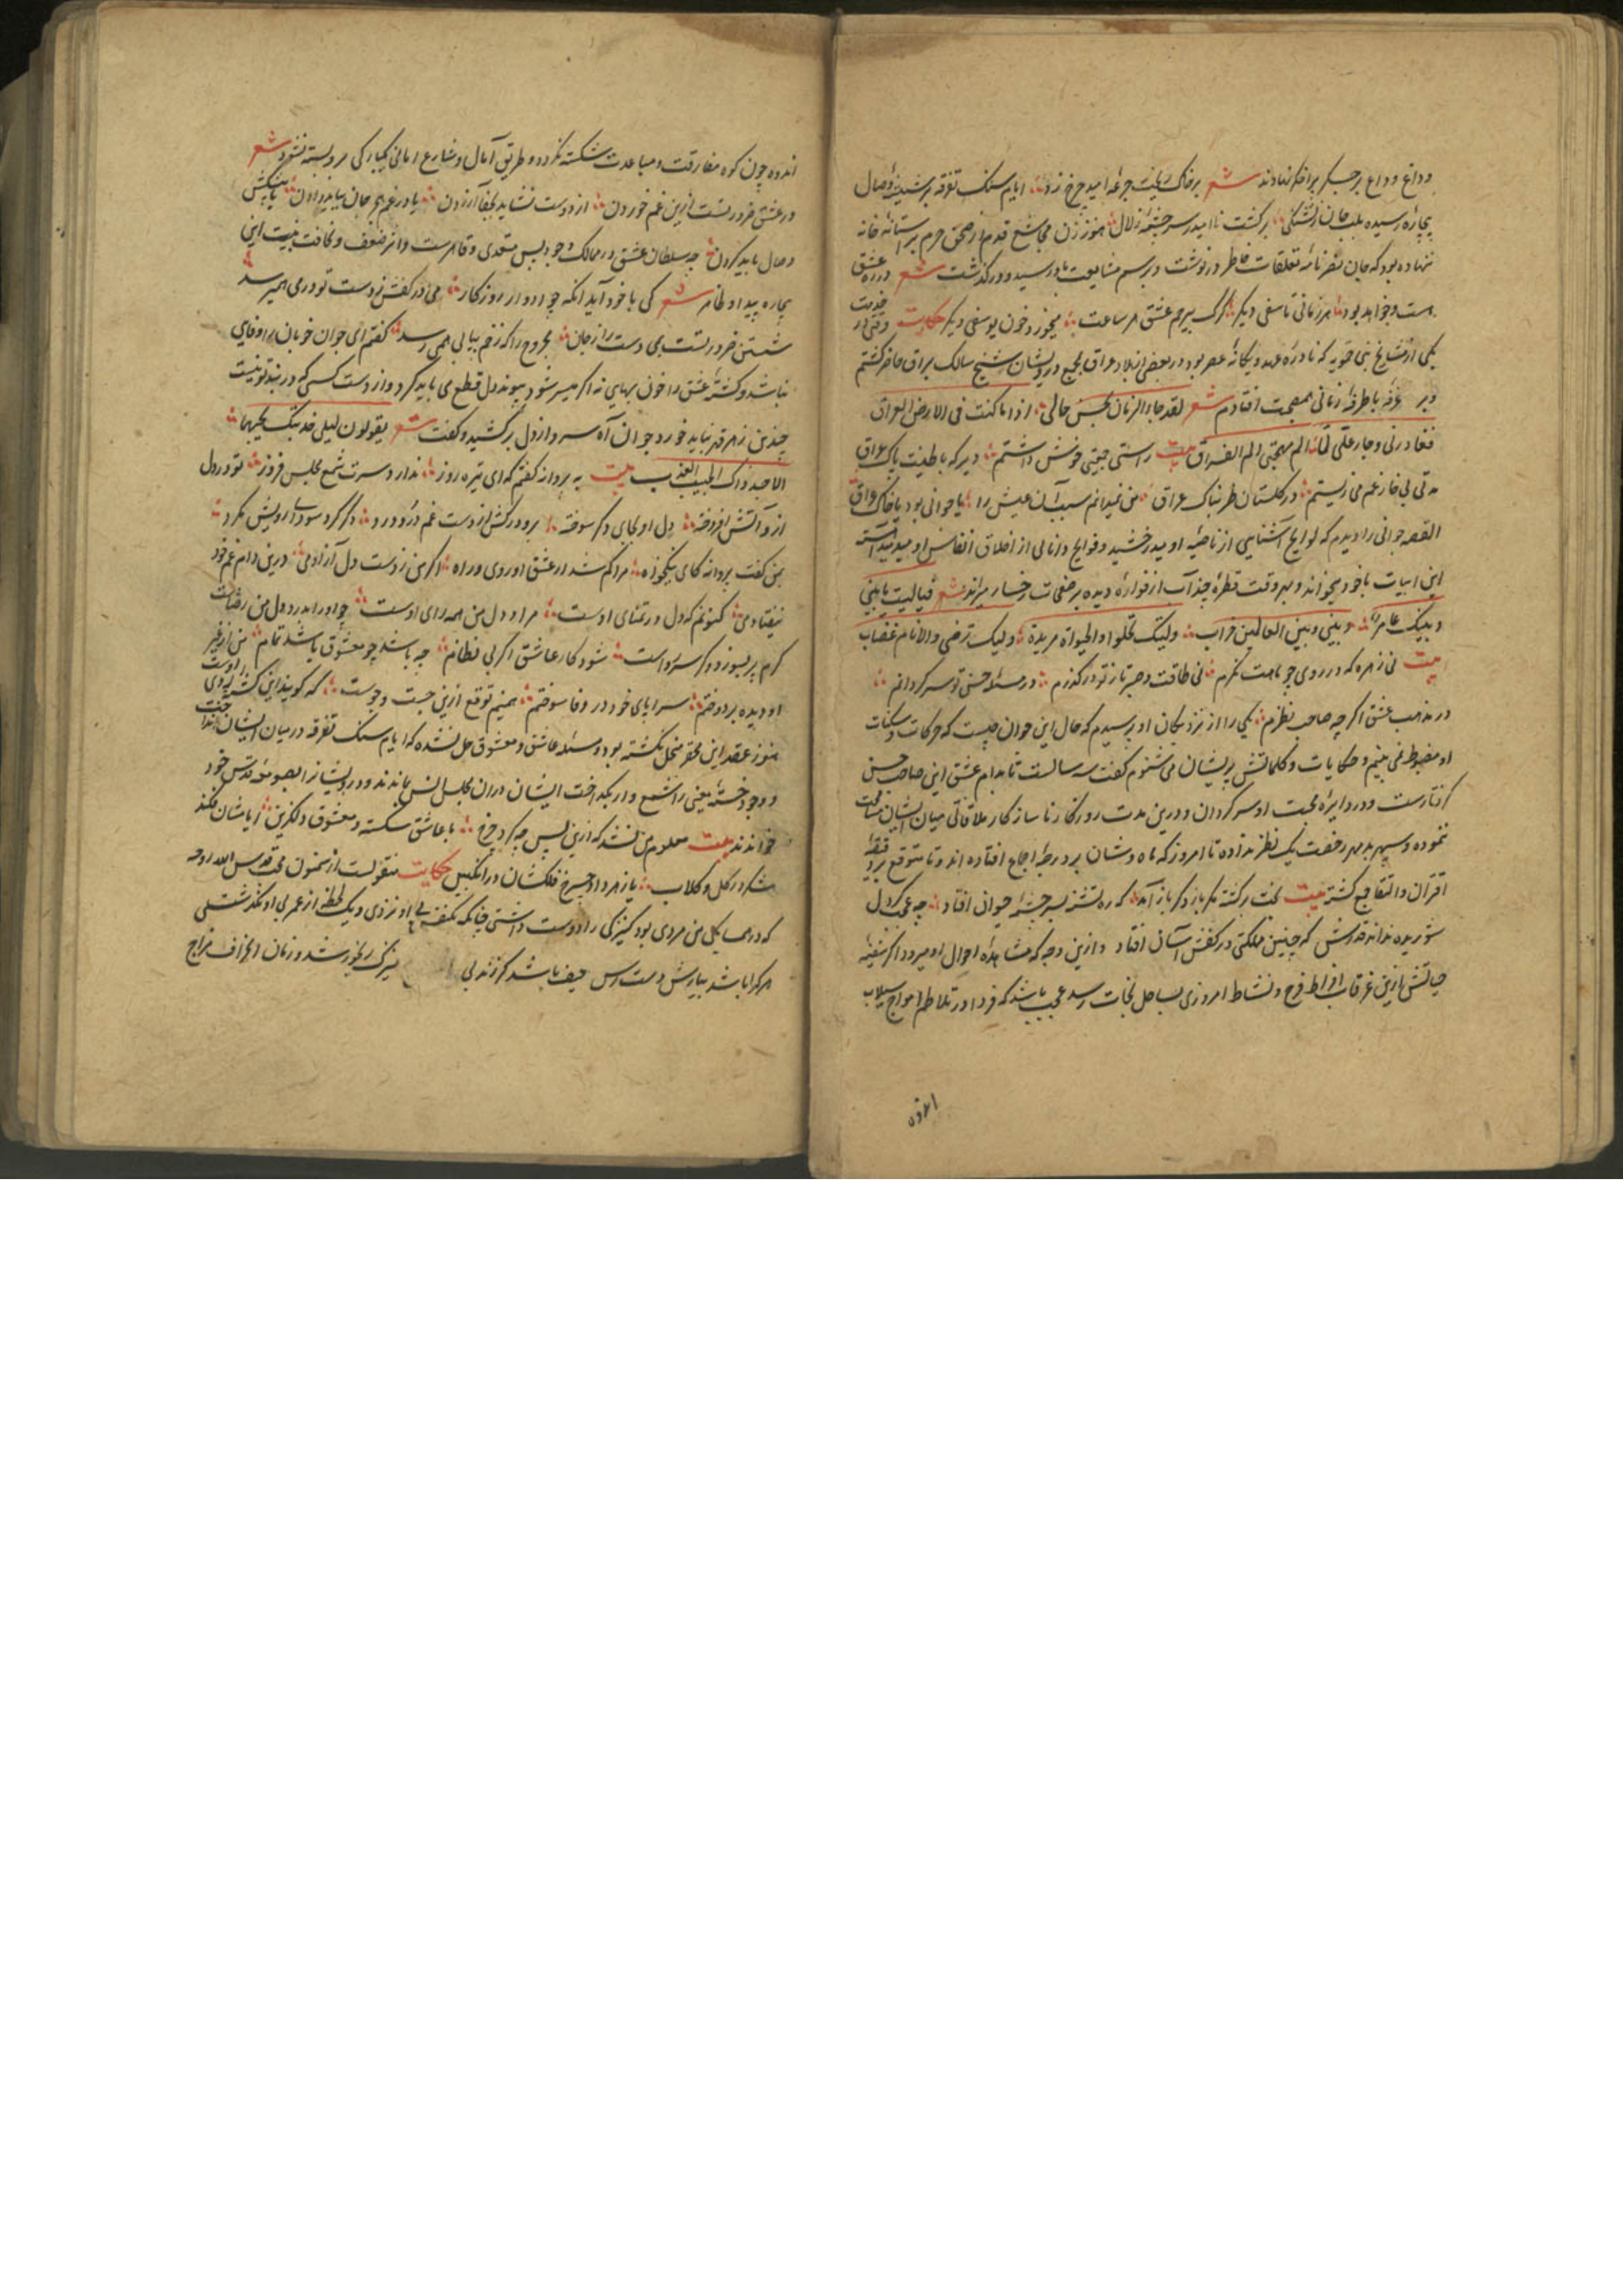 وداع وداع بر جگر برافکر نهادند شعر بر خاک ریخت جرعه امید چرخ زد ایام سنک تفرقه بر شیشه وصال
بیچاره رسیده بلب جان ز تشنگی برکشت ناامید ز سرچشمه زلال هنوز زن مجاشع قدم از صحن حرم بر آستانه خانه
ننهاده بود که جان نامه تعلقات خاطر درنوشت و برسم مشایعت بدو رسید و درگذشت شعر در ره عشق
هست و خواهد بود هر زمانی تاسفی دیگر گرگ پیر غم عشق هر ساعت میخورد خون یوسفی دیگر حکایت وقتی در خدمت
یکی از مشایخ که نادره عهد و یکانه عصر بود در بعضی از بلاد عراق بجمع درویشان شیخ سالک براق حاضر کشتم
و بر غرفه با طرفه زمانی بمصحبت افتادم شعر لقد جاد الزمان بحسن حالی اذا ما کنت فی الارض العراق
فغادرنی وجار علی لما الم بمهجتی الم الفراق بیت راستی جیبی خوش داشتم دیر که با طینت پاک عراق
مدتی بی خار غم می زیستم در گلستان طربناک عراق من نمیدانم سبب آن عیش را یا جوانی بود یا خاک عراق
القصه جوانی را دیدم که لوایح آشنایی از ناصیه او میدرخشید و فوایح دانایی از اخلاق انفاس او میدمید آهسته
این ابیات با خود میخواند و بهر وقت قطره چند آب از فواره دیده بر صفحات رخسار میراند شعر فیالیت ما بینی
و بینک عامر و بینی و بین العالمین خراب ولیتک تحلو والحیوة مریرة ولیتک ترضی والانام غضاب
بیت نی زهره که در روی چو ماهت نگرم نی طاقت و صبر تا ز تو درگذرم در مسئله حسن تو سرگردانم
در مذهب عشق اگرچه صاحب نظرم یکی را از نزدیکان او پرسیدم که حال این جوان چیست که حرکات و سکنات
او مضبوط نمی بینم و حکایات و کلماتش پریشان می شنوم گفت سه سالست تا بدام عشق این صاحب حسن
گرفتارست و در دایره محبت او سرگردان و درین مدت روزکار ناسازکار ملاقاتی میان ایشان مسامحت
ننموده و سپهر بدمهر رخصت یک نظر نداده تا امروز که ماه وشان بر درجه اجماع افتاده اند و تا متوقع بر دقیقه
اقران والتقا مجتمع کشته بیت بخت برکشته مگر باز دگر باز آمد که ره تشنه بسرچشمه حیوان افتاد چه عجب گر دل
شوریده نداند قدرش که چنین ملکتی در کفش آسان افتاد و ازین وجه که مشاهده احوال او میرود اگر سفینه
حیاتش ازین غرقاب افراط فرح و نشاط امروزی بساحل نجات رسد عجب باشد که فردا در تلاطم امواج سیلاب
اندوه
اندوه چون کوه مفارقت و مباعدت شکسته نکردد و طریق آمال و شارع امانی یکبارگی برو بسته نشود شعر
در عشق ضرورتست ازین غم خوردن از دوست نشاید بجفا آزردن یا در غم هجر جان بباید دادن یا پیشکش
وصال باید کردن چه سلطان عشق در ممالک وجود بس متعدی و قاهرست و اثر ضعف و نحافت بنیت این
بیچاره پیدا و ظاهر شعر کی با خود آید آنکه چو ادوار روزکار می در کفش ز دست تو دردی همیرسد
شستن ضرورتست همی دست را ز جان مجروح را که زخم پیاپی همی رسد گفتم ای جوان خوبان را وفای
نباشد و کشته عشق را خون بهایی نه اگر میسر شود پیوند دل قطع می باید کرد و از دست کسی که در بند تو نیست
چندین زهر قهر نباید خورد جوان آه سرد از دل برکشید و گفت شعر یقولون لیلی عذبتک بحبها
الا حبذا ذاک الحبیب المعذب بیت به پروانه گفتم که ای تیره روز ندارد سرت شمع مجلس فروز تو در دل
ازو آتش افروخته دل او بجای دگر سوخته برو درکش از دست غم درد ودود دگر گرد سودای رویش مگرد
بمن گفت پروانه کای نیکخواه مرا گم شد از عشق او روی و راه اگر من ز دست دل آزادمی درین دام غم خود
نیفتادمی کنونم که دل در تمنای اوست مرا و دل من همه رای اوست چو او را بدرد دل من رضاست
گرم پر بسوزد وگر سر رواست شود کار عاشق اگر بی نظام چه باشد چو معشوق باشد تمام من از غیر
او دیده بردوختم سراپای خود در وفا سوختم همینم توقع ازین جست و جوست که گویند این کشته روی اوست
هنوز عقد این محقر منحل نکشته بود و مسئله عاشق و معشوق حل نشده که ایام سنک تفرقه در میان ایشان انداخت
و وجود خسته یعنی را شمع وار بگداخت ایشان در آن مجلس انس بماندند و درویشان را بصومعه قدس خود
خواندند بیت معلوم من نشد که ازین پس چه کرد چرخ با عاشق شکسته و معشوق دلگزین ایامشان فکند
شکر در گل و گلاب یا زهر داد چرخ فلکشان در انگبین حکایت منقولست از سمنون محب قدس الله روحه
که در همسایگی من مردی بود کنیزکی را دوست داشتی چنانکه نفسی بی او نزدی و یک لحظه از عمر بی او نگذشتی
هر کرا باشد بیارش دسترس حیف باشد گر زند بی کنیزک رنجور شد و زمان انحراف مزاج